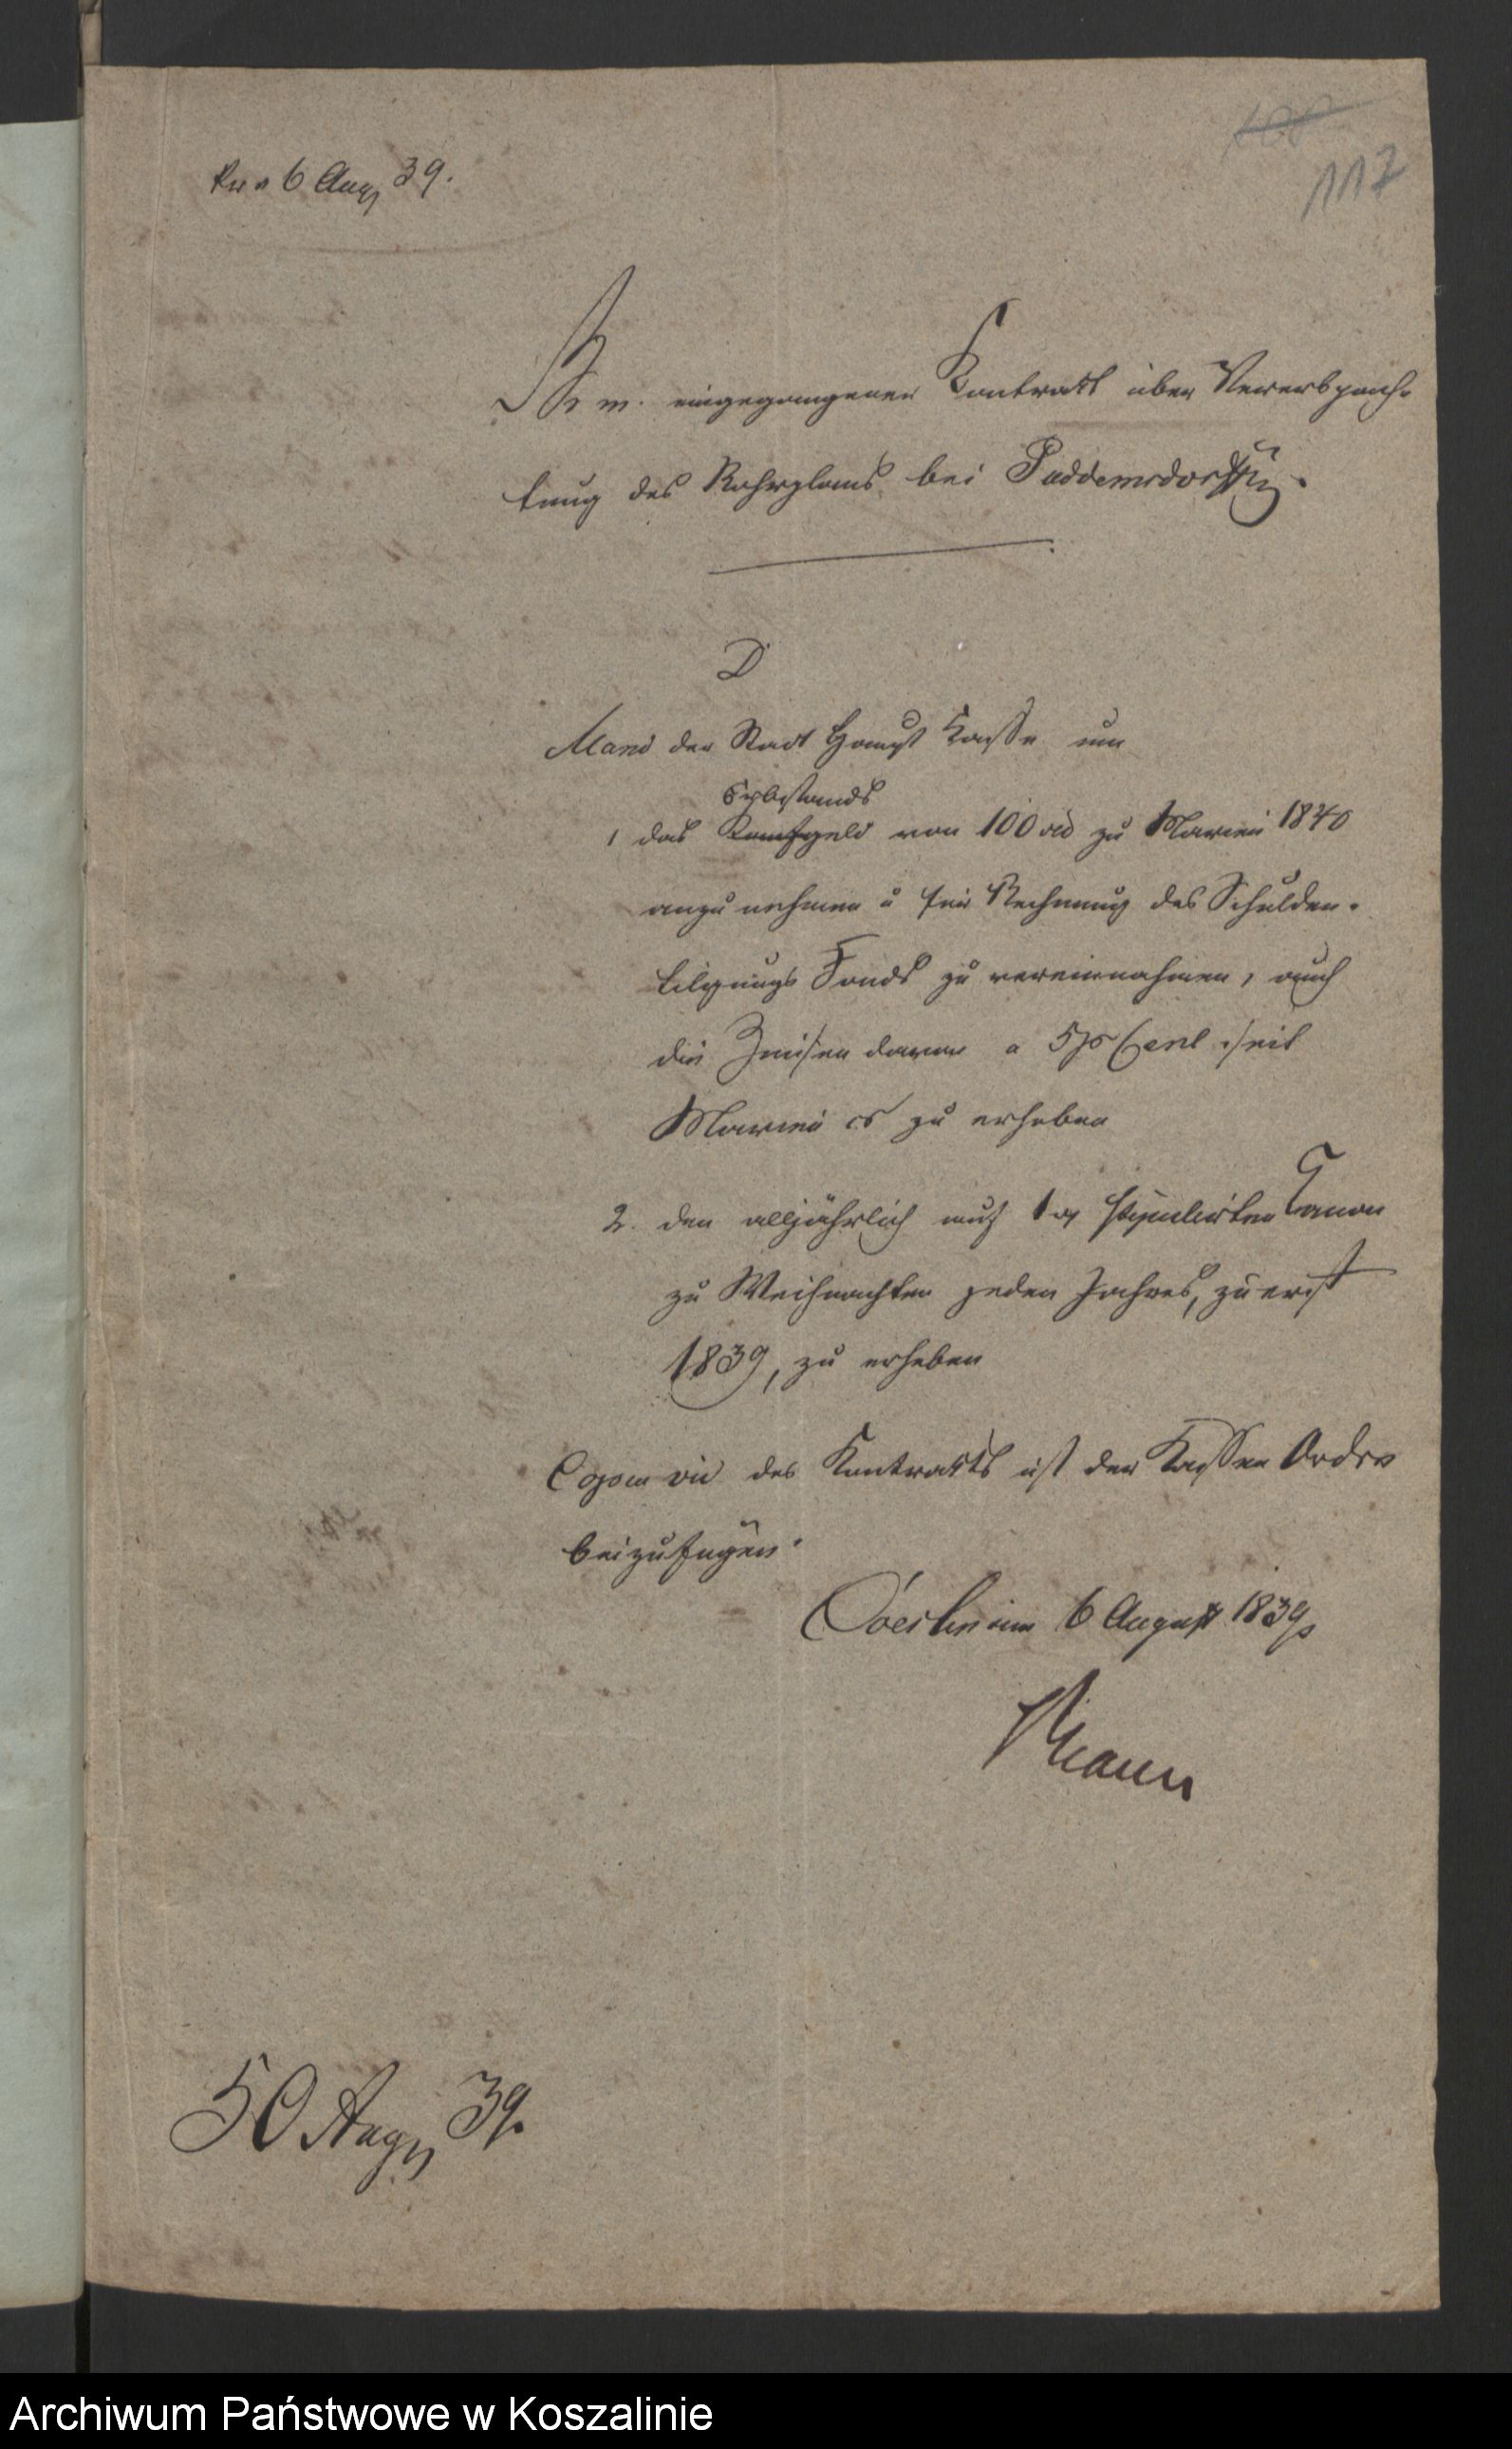 6 Aug 39.
117
m. eingegangener Contrakt über Vererbpach-
tung des Rohrplans bei Puddemsdorff
D
Mand der Stadt Haupt Kasse um
Erbstands
1 das Kaufgeld von 100 zu Marien 1840
anzunehmen u für Rechnung des Schulden-
tilgungs Fonds zu vereinnahmen, auch
die Zinsen davon a 5 pCent seit
Marien cs zu erheben
2. den alljährlich auf stipulirten Canon
zu Weihnachten jeden Jahres, zuerst
1839, zu erheben
Copia vid des Kontrakts ist der Kassen Ordre
beizufügen.
Coeslin am 6 August 1839
Braun
50 Aug 39.
Archiwum Państwowe w Koszalinie